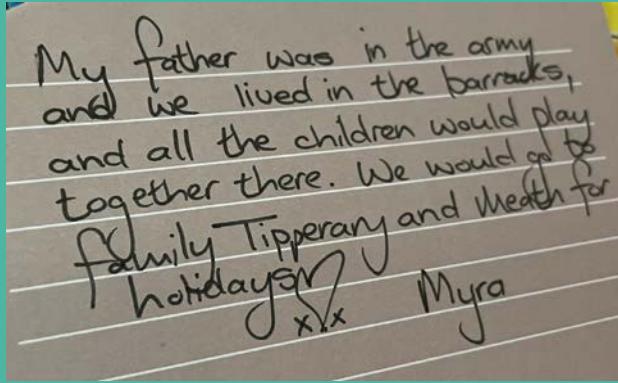 My father was in the army
and we lived in the barracks,
and all the children would play
together there. We would go to
family Tipperary and Meath for
holidays
x x Myra